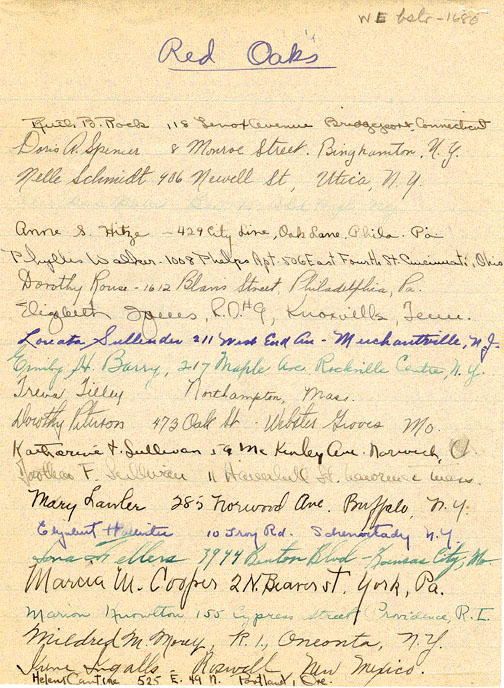 WEbstr-1685
Red Oaks
Ruth B. Rock 118 Lenox Avenue Bridgeport, Connecticut
Doris A. Spencer 8 Monroe Street. Binghamton, N.Y.
Nelle Schmidt 406 Newell St, Utica, N.Y.
Anne S. Hitze - 429 City Line, Oak Lane, Phila. Pa
Phyllis Walker - 1008 Phelps Apt. 506 East Fourth St. Cincinnati, Ohio
Dorothy Rouse - 1612 Street Philadelphia, Pa.
Elizabeth R.D.#9, Knoxville, Tenn.
Loreata Sullender 211 West End Av - Merchantville, N.J.
Emily H. Barry, 217 Maple Ave. Rockville Centre, N.Y.
Treva Tilley Northampton, Mass.
Dorothy Peterson 473 Oak St. Webster Groves Mo.
Katharine F. Sullivan 59 McKinley Ave. Norwich,
F. Sullivan 11 Haverhill St. Lawrence Mass.
Mary Lawler 285 Norwood Ave. Buffalo, N.Y.
10 Troy Rd. Schenectady N.Y.
3944 Benton Blvd - Kansas City, Mo.
Marcia M. Cooper 2 N. Beaver St. York, Pa.
Marion Knowlton 155 Cypress Street Providence, R.I.
Mildred M. R.1, Oneonta, N.Y.
Irene Ingalls - Roswell New Mexico.
Helen Cantine 525 E. 49 N. Portland, Ore.